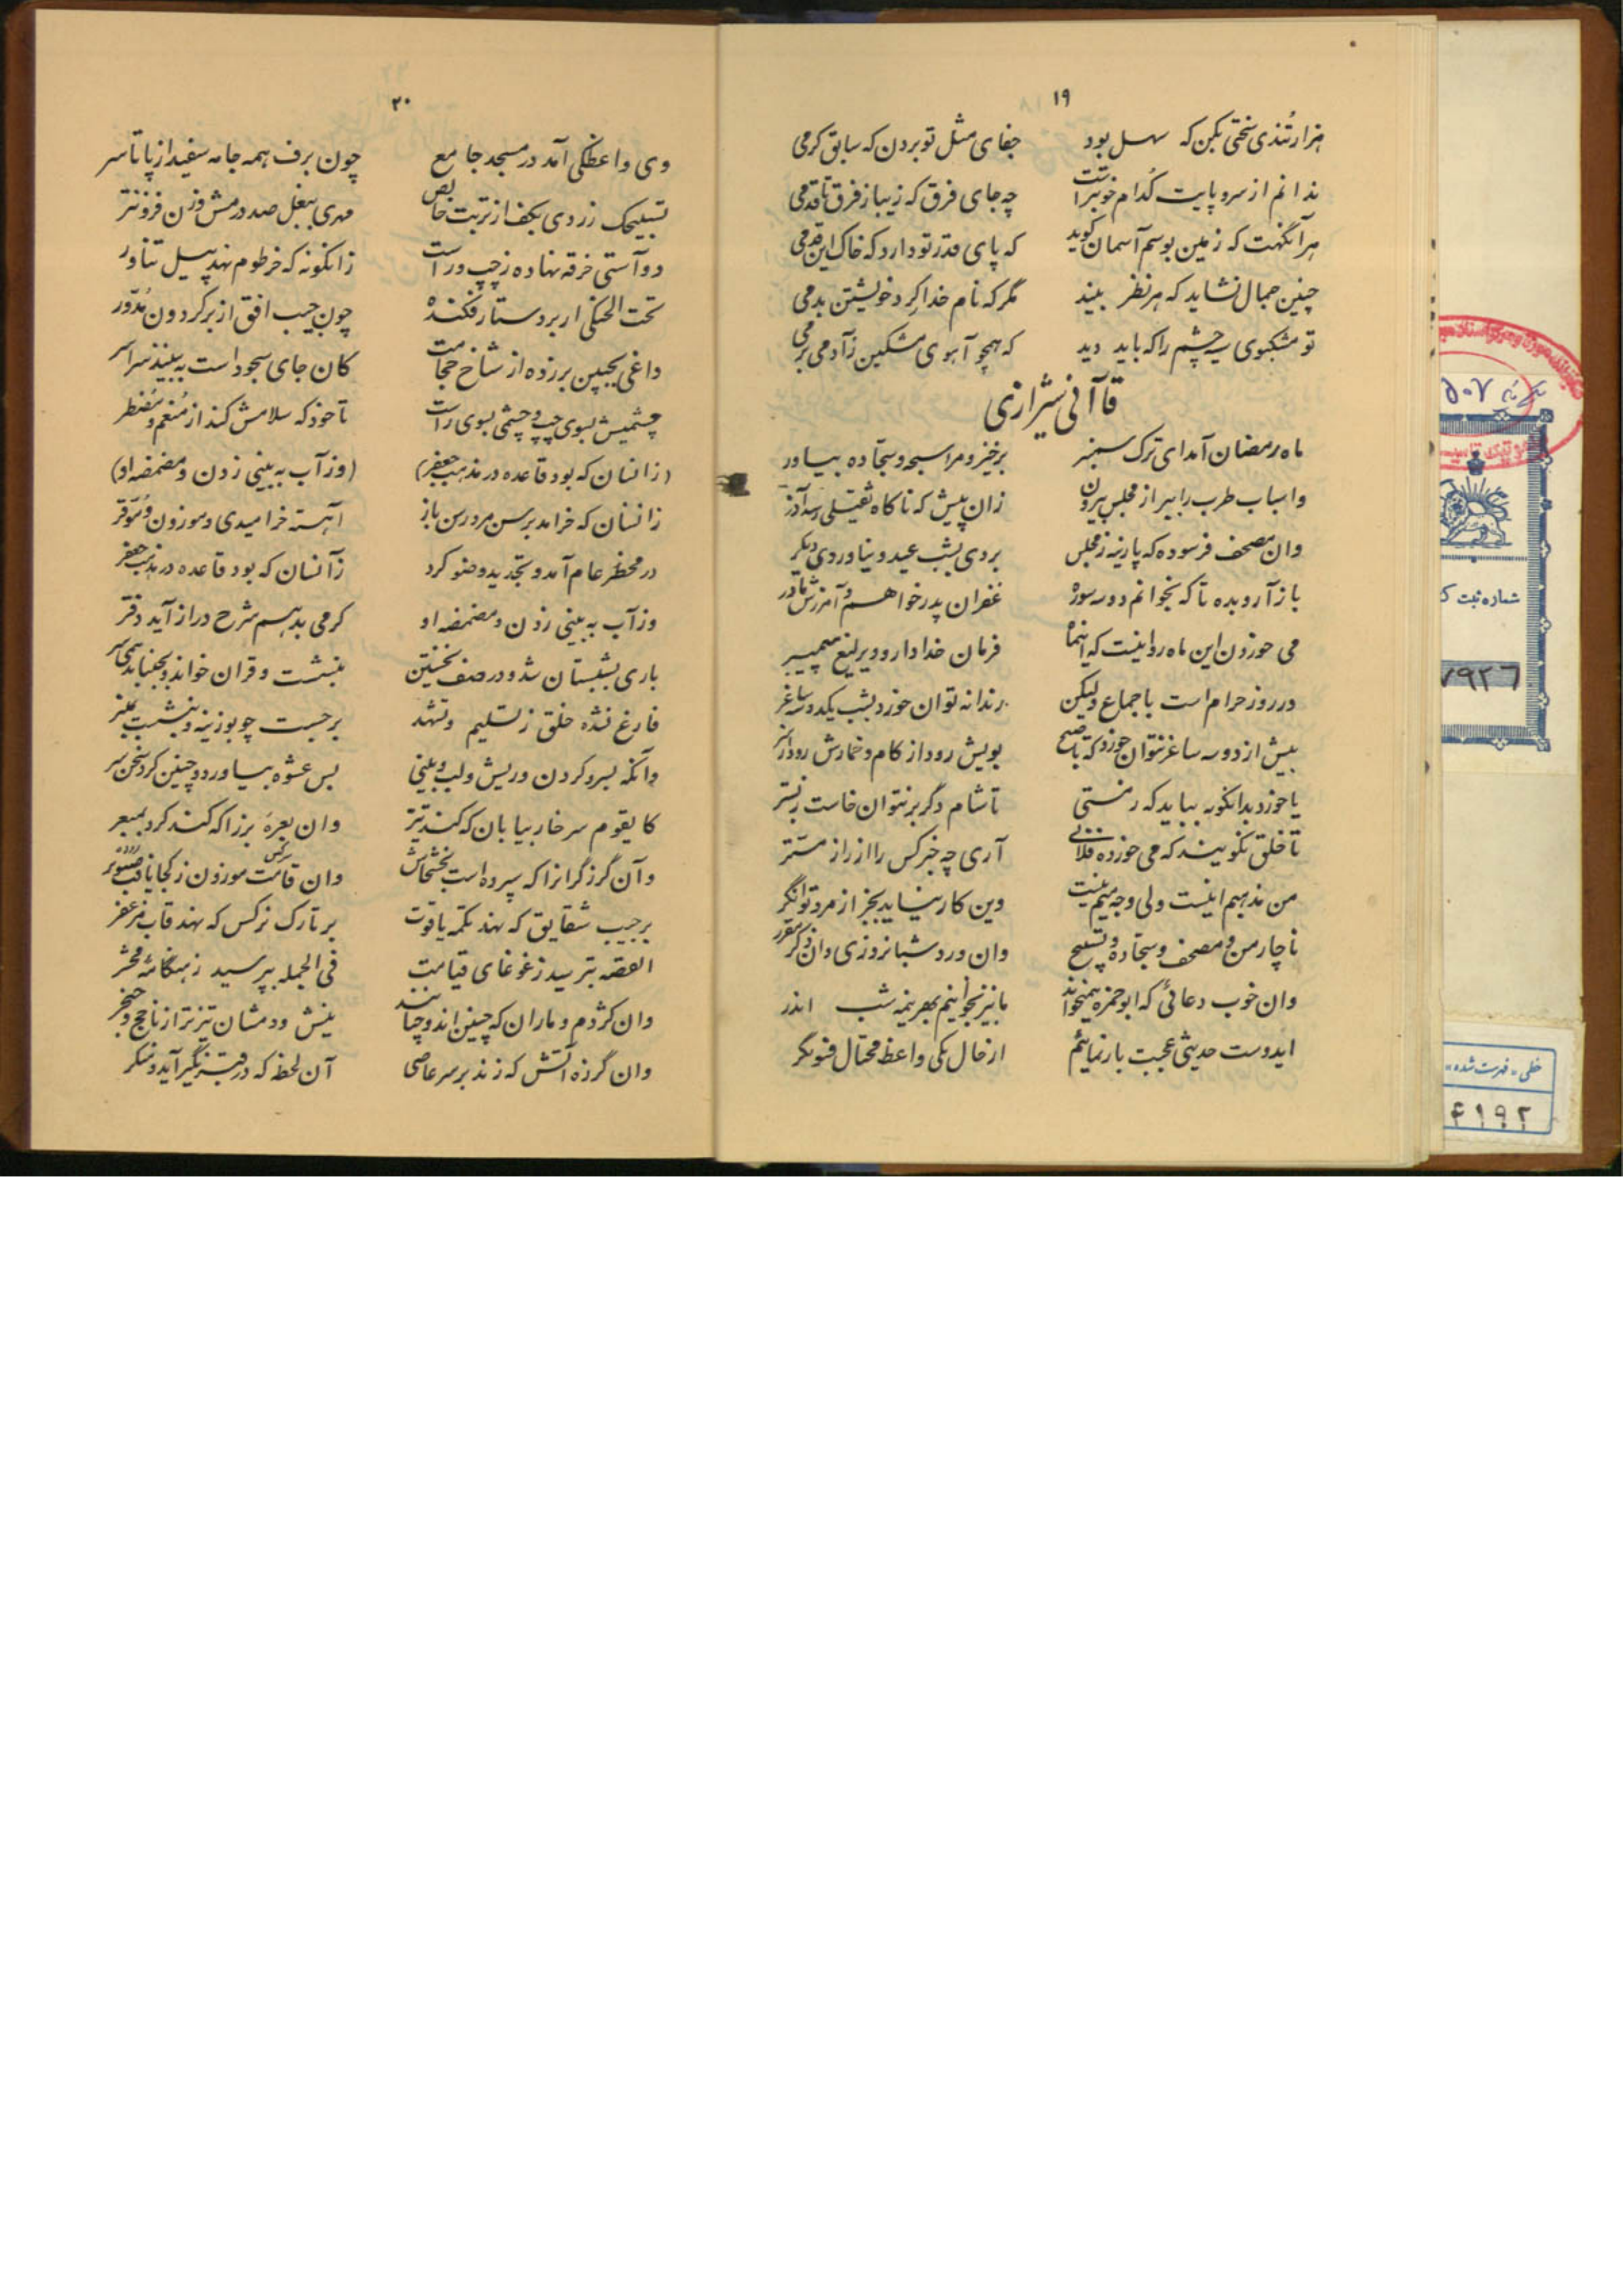 ۱۹
هزار تندی سختی بکن که سهل بود جفای مثل تو بردن که سابق کرمی
ندانم از سر و پایت کدام خوبتر است چه جای فرق که زیبا ز فرق تا قدمی
هر آنگهت که زمین بوسم آسمان گوید که پای قدر تو دارد که خاک این قدمی
چنین جمال نشاید که هر نظر بیند مگر که نام خدا گرد خویشتن بدمی
تو مشکبوی سیه چشم را که باید دید که همچو آهوی مشکین ز آدمی برمی
قاآنی شیرازی
ماه رمضان آمد ای ترک سمنبر برخیز و مرا سبحه و سجاده بیاور
و اسباب طرب را ببر از مجلس بیرون زان پیش که ناگاه ثقیلی رسد از در
وان مصحف فرسوده که پارینه ز مجلس بردی بشب عید و نیاوردی دیگر
باز آر و بده تا که بخوانم دو سه سوره غفران پدر خواهم و آمرزش مادر
می خوردن این ماه روا نیست که اینماه فرمان خدا دارد و یرلیغ پیمبر
در روز حرام است باجماع ولیکن رندانه توان خورد بشب یکدو سه ساغر
بیش از دو سه ساغر نتوان خورد که تا صبح بویش رود از کام و خمارش رود از سر
یا خورد بدانگونه بباید که ز مستی تا شام دگر برنتوان خاست ز بستر
تا خلق نگویند که می خورده فلانی آری چه خبر کس را از راز مستر
من مذهبم اینست ولی وجه میم نیست وین کار نیاید بجز از مرد توانگر
ناچار من و مصحف و سجاده و تسبیح وان ورد شبانروزی وان ذکر مقرر
وان خوب دعائی که ابوحمزه همیخواند ما نیز بخوانیم بهر نیمه شب اندر
ایدوست حدیثی عجبت باز نمایم از حال یکی واعظ محتال فسونگر
۲۰
وی واعظکی آمد در مسجد جامع چون برف همه جامه سفید از پا تا سر
تسبیحک زردی بکف از تربت خالص مهری ببغل صد درمش وزن فزونتر
دو آستی خرقه نهاده ز چپ و راست زانگونه که خرطوم نهد پیل تناور
تحت الحنکی از بر دستار فکنده چون جیب افق از بر گردون مدور
داغی بجبین بر زده از شاخ حجامت کان جای سجود است ببینید سراسر
چشمیش بسوی چپ و چشمی بسوی راست تا خود که سلامش کند از منعم و مضطر
(زانسان که بود قاعده در مذهب جعفر) (وز آب به بینی زدن و مضمضه او)
زانسان که خرامد برسن مرد رسن باز آهسته خرامیدی و موزون و موقر
در محضر عام آمد و تجدید وضو کرد زآنسان که بود قاعده در مذهب جعفر
وز آب به بینی زدن و مضمضه او گر می بدهم شرح دراز آید دفتر
باری بشبستان شد و در صف نخستین بنشست و قران خواند و بجنباند همی سر
فارغ نشده خلق ز تسلیم و تشهد برجست چو بوزینه و بنشست بمنبر
وانگه بسر و گردن و ریش و لب و بینی بس عشوه بیاورد و چنین کرد سخن سر
کایقوم سر خار بیابان که کند تیز وان بعره بز را که کند گرد بمبعر
وآن گرز گرانرا که سپرده است بخشخاش وان قامت موزون ز کجا یافت صنوبر
بر جیب شقایق که نهد تکمه یاقوت بر تارک نرگس که نهد قاب مزعفر
القصه بترسید ز غوغای قیامت فی الجمله بپرسید ز هنگامه محشر
وان کژدم و ماران که چنین اند و چنانند نیش و دمشان تیزتر از ناچخ و خنجر
وان گرزه آتش که زند بر سر عاصی آن لحظه که در قبر نکیر آید و منکر
۵۰۷
شماره ثبت ک
۷۹۲۶
خطی «فهرست شده»
۴۱۹۲